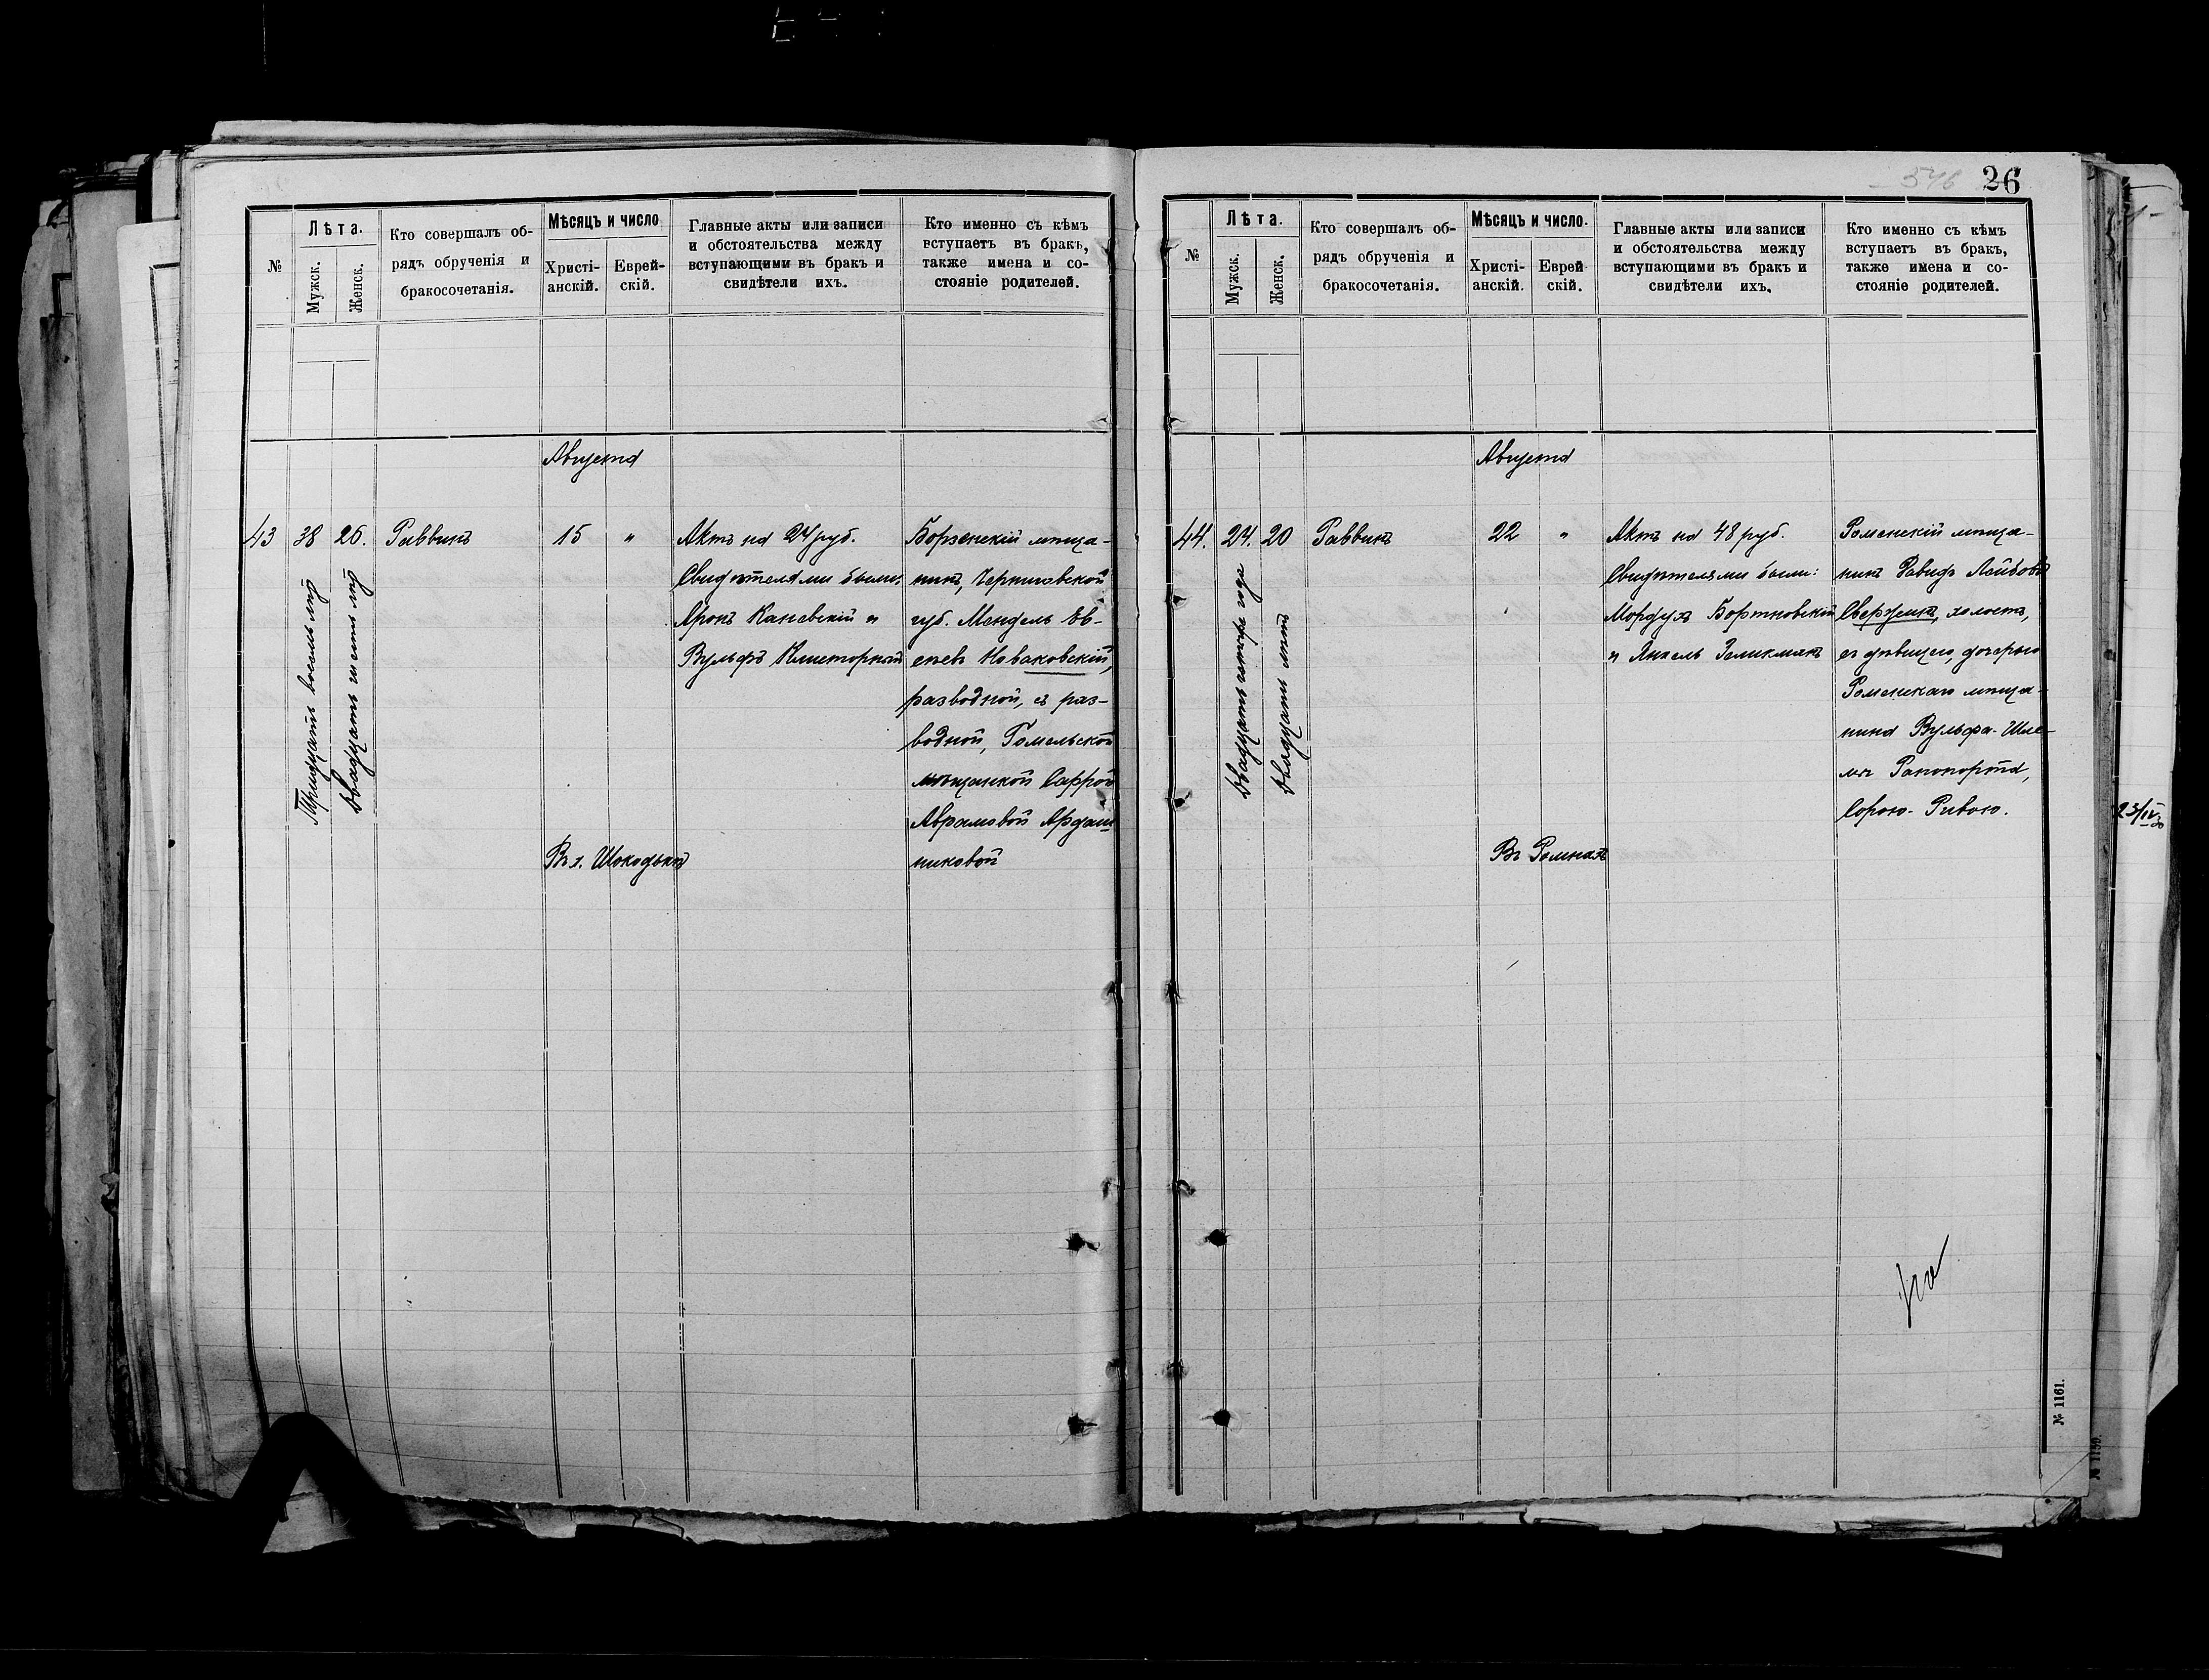 546 26
№
Лѣта.
Мужск.
Женск.
Кто совершалъ об-
рядъ обрученія и
бракосочетанія.
Мѣсяцъ и число
Христі-
анскій.
Еврей-
скій.
Главные акты или записи
и обстоятельства между
вступающими въ бракъ и
свидѣтели ихъ.
Кто именно съ кѣмъ
вступаетъ въ бракъ,
также имена и со-
стояніе родителей.
Августа
43
38
26.
Тридцать восемь лѣт
двадцать шесть лѣт
Раввинъ
15
"
Въ г.
Актъ на 24 руб.
Свидѣтелями были:
Аронъ Каневскій и
Вульфъ Клисторный
Борзенскій мѣща-
нинъ, Черниговской
губ. Мендель Ев-
новъ Новаковскій,
разводной, съ раз-
водной, Гомельской
мѣщанкой Саррой
Абрамовой Ардаш
никовой
№
Лѣта.
Мужск.
Женск.
Кто совершалъ об-
рядъ обрученія и
бракосочетанія.
Мѣсяцъ и число.
Христі-
анскій.
Еврей
скій.
Главные акты или записи
и обстоятельства между
вступающими въ бракъ и
свидѣтели ихъ.
Кто именно съ кѣмъ
вступаетъ въ бракъ,
также имена и со-
стояніе родителей.
Августа
44.
24.
20
двадцать четыре года
двадцать лѣтъ
Раввинъ
22
"
Въ Ромнахъ
Актъ на 48 руб.
Свидѣтелями были:
Мордухъ Бортновскій
и Янкель Зеликманъ
Роменскій мѣща-
нинъ Давидъ Лейбовъ
Свержинъ, холостъ,
съ дѣвицею, дочерью
Роменскаго мѣща-
нина Вульфа-Шле-
мы Рапопорта,
Сорою-Ривою.
№ 1161.
№ 1159.